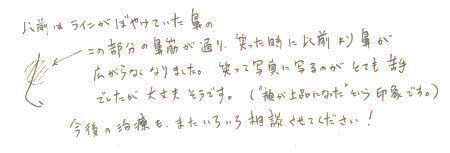 以前はラインがぼやけていた鼻の
この部分の鼻筋が通り、笑った時に以前より鼻が
広がらなくなりました。笑って写真に写るのがとても苦手
でしたが大丈夫そうです。("顔が上品になった"という印象です。)
今後の治療も、またいろいろ相談させてください!